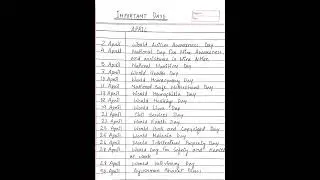 IMPORTANT DAYS
APRIL
2 April World Autism Awareness Day
4 April National Day for Mine Awareness
and assistance in Mine Action
5 April National Maritime Day
7 April World Health Day
10 April World Homeopathy Day
11 April National Safe Motherhood Day
17 April World Hemophilia Day
18 April World Heritage Day
19 April World Liver Day
21 April Civil Services Day
22 April World Earth Day
23 April World Book and Copyright Day
25 April World Malaria Day
26 April World Intellectual Property Day
28 April World Day for Safety and Health
at work
29 April World Veterinary Day
30 April Ayushman Bharat Diwas